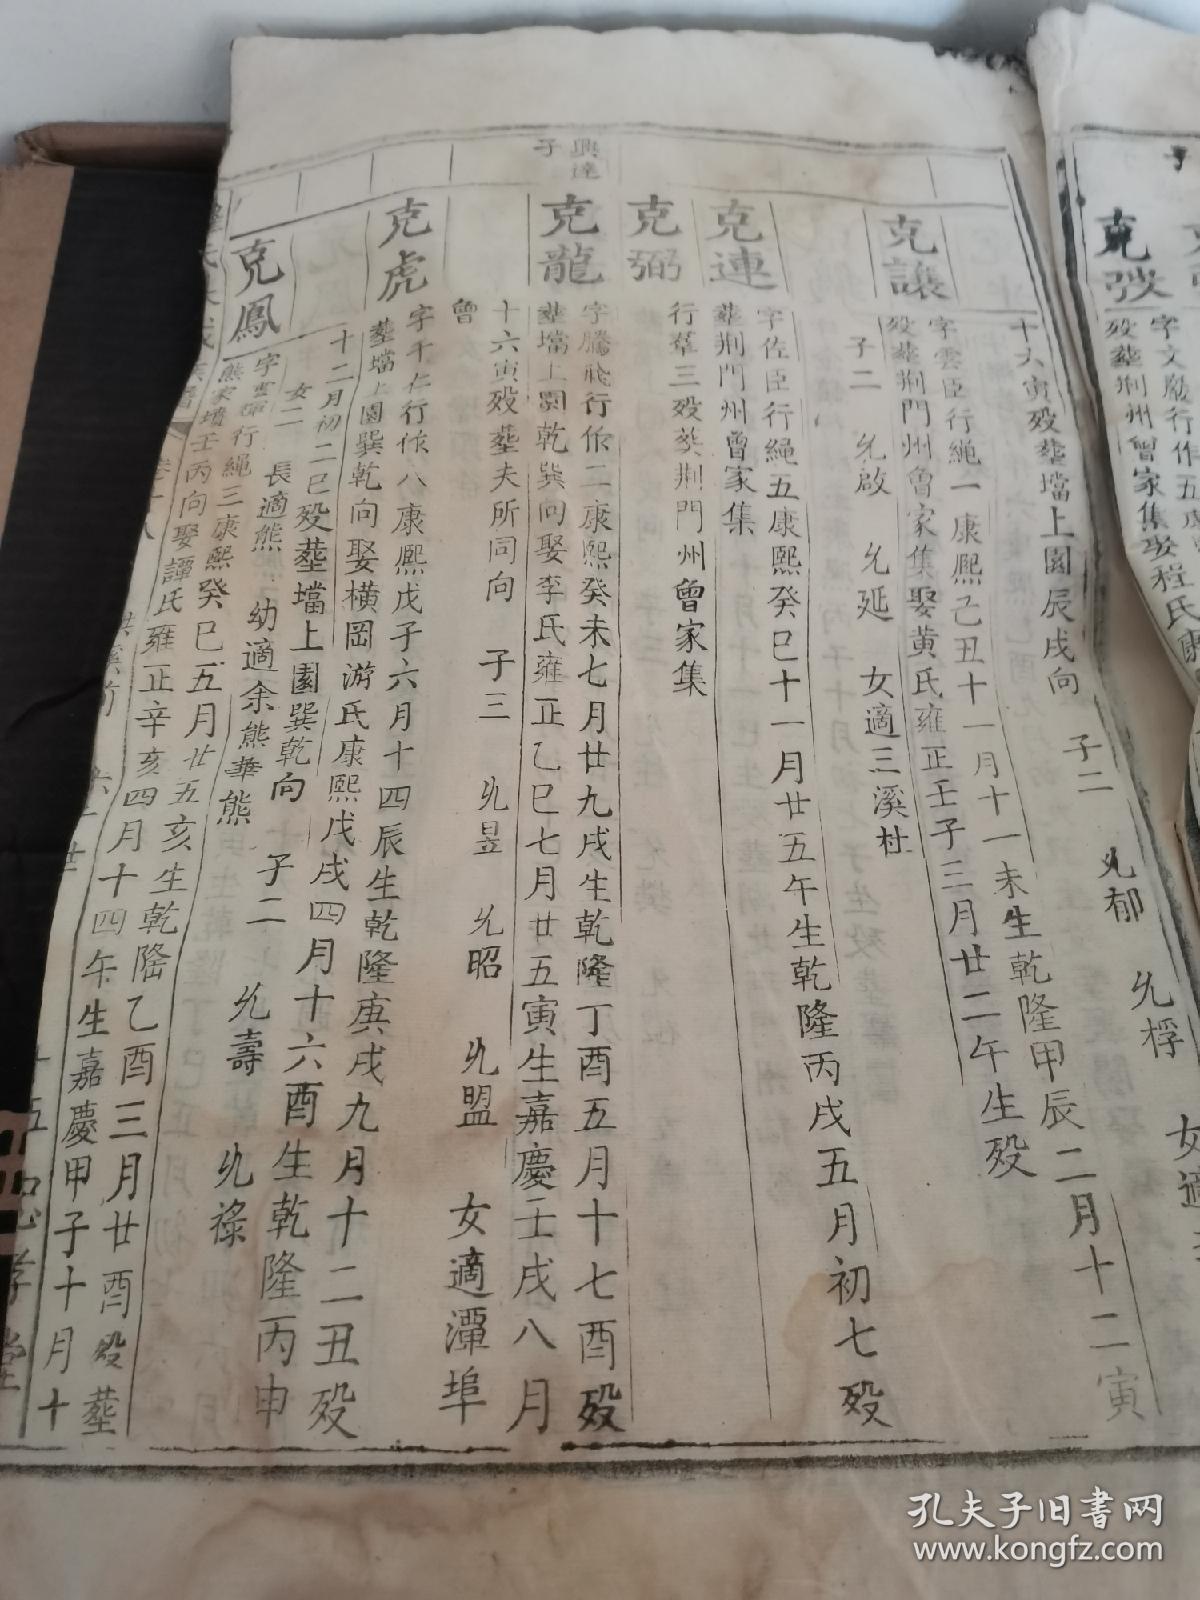 克
克㢬
字文
殁塟荆州曾家集娶程氏康
女適
十六寅殁塟壋上園辰戌向 子二 允郁 允桴
克讓
字雲臣行繩一康熙己丑十一月十一未生乾隆甲辰二月十二寅
殁塟荆門州曾家集娶黃氏雍正壬子三月廿二午生殁
子二 允啟 允延 女適三溪杜
克連
字佐臣行繩五康熙癸巳十一月廿五午生乾隆丙戌五月初七殁
塟荆門州曾家集
克弼
行羣三殁葵荆門州曾家集
興達
子
克龍
字騰飛行作二康熙癸未七月廿九戌生乾隆丁酉五月十七酉殁
塟壋上園乾巽向娶李氏雍正乙巳七月廿五寅生嘉慶壬戌八月
十六寅殁塟夫所同向 子三 允昱 允昭 允盟 女適潭埠
曾
克虎
字千仁行作八康熙戊子六月十四辰生乾隆庚戌九月十二丑殁
塟壋上園巽乾向娶橫岡游氏康熙戊戌四月十六酉生乾隆丙申
十二月初二巳殁塟壋上園巽乾向 子二 允壽 允祿
女二 長適熊 幼適余熊華熊
克鳳
字雲輝行繩三康熙癸巳五月廿五亥生乾隆乙酉三月廿酉殁塟
熊家墳壬丙向娶譚氏雍正辛亥四月十四午生嘉慶甲子十月十
忠孝堂
孔夫子旧书网
www.kongfz.com